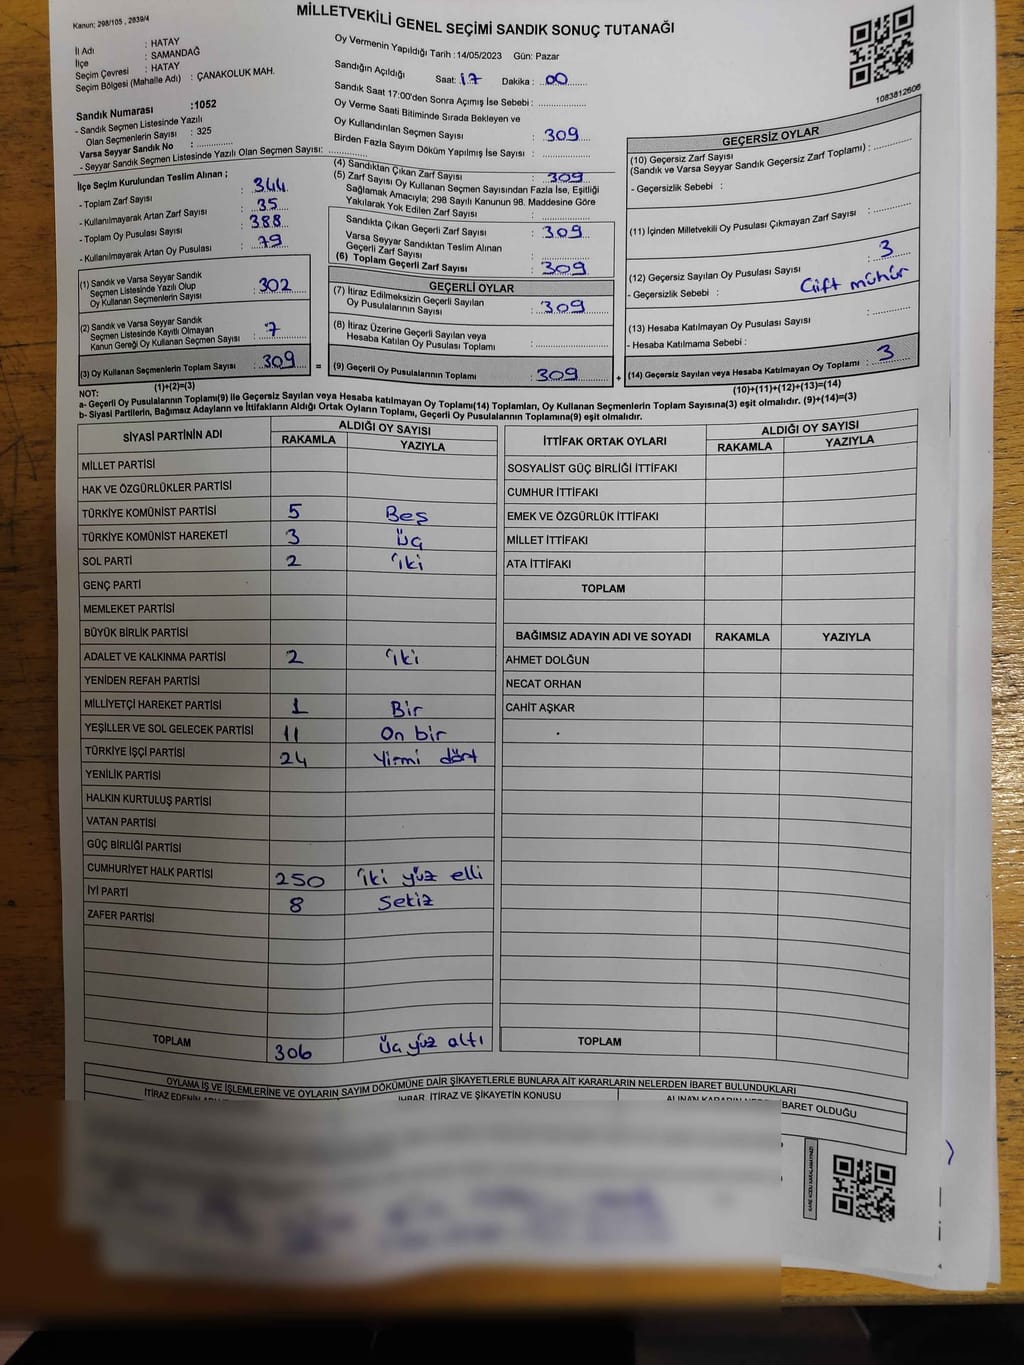 Kanun: 298/105 , 2839/4
MİLLETVEKİLİ GENEL SEÇİMİ SANDIK SONUÇ TUTANAĞI
İl Adı : HATAY
İlçe : SAMANDAĞ
Seçim Çevresi : HATAY
Seçim Bölgesi (Mahalle Adı) : ÇANAKOLUK MAH.
Sandık Numarası :1052
- Sandık Seçmen Listesinde Yazılı
Olan Seçmenlerin Sayısı : 325
Varsa Seyyar Sandık No :
- Seyyar Sandık Seçmen Listesinde Yazılı Olan Seçmen Sayısı:
İlçe Seçim Kurulundan Teslim Alınan ;
- Toplam Zarf Sayısı : 344
- Kullanılmayarak Artan Zarf Sayısı : 35
- Toplam Oy Pusulası Sayısı : 388
- Kullanılmayarak Artan Oy Pusulası : 79
(1) Sandık ve Varsa Seyyar Sandık
Seçmen Listesinde Yazılı Olup
Oy Kullanan Seçmenlerin Sayısı : 302
(2) Sandık ve Varsa Seyyar Sandık
Seçmen Listesinde Kayıtlı Olmayan
Kanun Gereği Oy Kullanan Seçmen Sayısı : 7
(3) Oy Kullanan Seçmenlerin Toplam Sayısı : 309
(1)+(2)=(3)
Oy Vermenin Yapıldığı Tarih :14/05/2023 Gün: Pazar
Sandığın Açıldığı Saat: 17 Dakika : 00
Sandık Saat 17:00'den Sonra Açımış İse Sebebi :
Oy Verme Saati Bitiminde Sırada Bekleyen ve
Oy Kullandırılan Seçmen Sayısı : 309
Birden Fazla Sayım Döküm Yapılmış İse Sayısı :
(4) Sandıktan Çıkan Zarf Sayısı : 309
(5) Zarf Sayısı Oy Kullanan Seçmen Sayısından Fazla İse, Eşitliği
Sağlamak Amacıyla; 298 Sayılı Kanunun 98. Maddesine Göre
Yakılarak Yok Edilen Zarf Sayısı :
Sandıkta Çıkan Geçerli Zarf Sayısı : 309
Varsa Seyyar Sandıktan Teslim Alınan
Geçerli Zarf Sayısı :
(6) Toplam Geçerli Zarf Sayısı : 309
GEÇERLİ OYLAR
(7) İtiraz Edilmeksizin Geçerli Sayılan
Oy Pusulalarının Sayısı : 309
(8) İtiraz Üzerine Geçerli Sayılan veya
Hesaba Katılan Oy Pusulası Toplamı :
= (9) Geçerli Oy Pusulalarının Toplamı : 309 +
1083812606
GEÇERSİZ OYLAR
(10) Geçersiz Zarf Sayısı
(Sandık ve Varsa Seyyar Sandık Geçersiz Zarf Toplamı) :
- Geçersizlik Sebebi :
(11) İçinden Milletvekili Oy Pusulası Çıkmayan Zarf Sayısı :
(12) Geçersiz Sayılan Oy Pusulası Sayısı : 3
- Geçersizlik Sebebi : Çift mühür
(13) Hesaba Katılmayan Oy Pusulası Sayısı :
- Hesaba Katılmama Sebebi :
(14) Geçersiz Sayılan veya Hesaba Katılmayan Oy Toplamı : 3
(10)+(11)+(12)+(13)=(14)
NOT:
a- Geçerli Oy Pusulalarının Toplam(9) ile Geçersiz Sayılan veya Hesaba katılmayan Oy Toplamı(14) Toplamları, Oy Kullanan Seçmenlerin Toplam Sayısına(3) eşit olmalıdır. (9)+(14)=(3)
b- Siyasi Partilerin, Bağımsız Adayların ve İttifakların Aldığı Ortak Oyların Toplamı, Geçerli Oy Pusulalarının Toplamına(9) eşit olmalıdır.
SİYASİ PARTİNİN ADI ALDIĞI OY SAYISI
RAKAMLA YAZIYLA
MİLLET PARTİSİ
HAK VE ÖZGÜRLÜKLER PARTİSİ
TÜRKİYE KOMÜNİST PARTİSİ 5 Beş
TÜRKİYE KOMÜNİST HAREKETİ 3 üç
SOL PARTİ 2 iki
GENÇ PARTİ
MEMLEKET PARTİSİ
BÜYÜK BİRLİK PARTİSİ
ADALET VE KALKINMA PARTİSİ 2 iki
YENİDEN REFAH PARTİSİ
MİLLİYETÇİ HAREKET PARTİSİ 1 Bir
YEŞİLLER VE SOL GELECEK PARTİSİ 11 On bir
TÜRKİYE İŞÇİ PARTİSİ 24 Yirmi dört
YENİLİK PARTİSİ
HALKIN KURTULUŞ PARTİSİ
VATAN PARTİSİ
GÜÇ BİRLİĞİ PARTİSİ
CUMHURİYET HALK PARTİSİ 250 iki yüz elli
İYİ PARTİ 8 Sekiz
ZAFER PARTİSİ
TOPLAM 306 üç yüz altı
İTTİFAK ORTAK OYLARI ALDIĞI OY SAYISI
RAKAMLA YAZIYLA
SOSYALİST GÜÇ BİRLİĞİ İTTİFAKI
CUMHUR İTTİFAKI
EMEK VE ÖZGÜRLÜK İTTİFAKI
MİLLET İTTİFAKI
ATA İTTİFAKI
TOPLAM
BAĞIMSIZ ADAYIN ADI VE SOYADI RAKAMLA YAZIYLA
AHMET DOLĞUN
NECAT ORHAN
CAHİT AŞKAR
TOPLAM
OYLAMA İŞ VE İŞLEMLERİNE VE OYLARIN SAYIM DÖKÜMÜNE DAİR ŞİKAYETLERLE BUNLARA AİT KARARLARIN NELERDEN İBARET BULUNDUKLARI
İTİRAZ EDENİN İHBAR, İTİRAZ VE ŞİKAYETİN KONUSU ALINAN KARARIN İBARET OLDUĞU